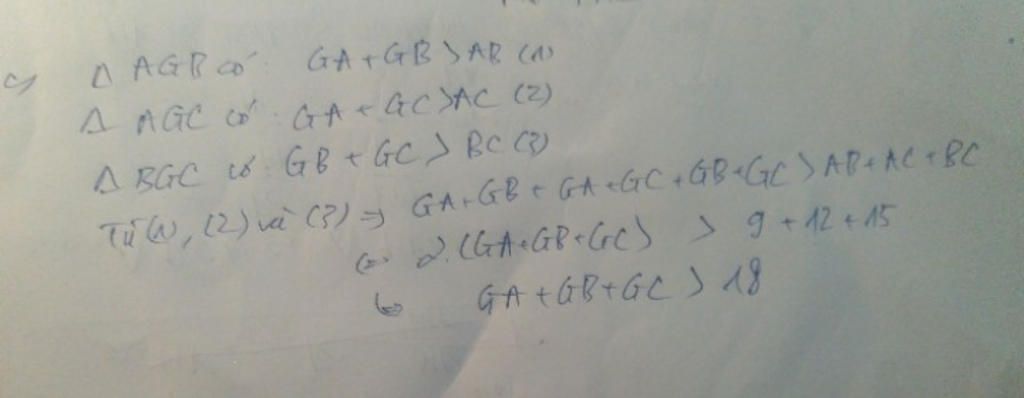 c) Δ AGB có: GA + GB > AB (1)
Δ AGC có: GA + GC > AC (2)
Δ BGC có: GB + GC > BC (3)
Từ (1), (2) và (3) ⇒ GA + GB + GA + GC + GB + GC > AB + AC + BC
⇔ 2.(GA + GB + GC) > 9 + 12 + 15
⇔ GA + GB + GC > 18